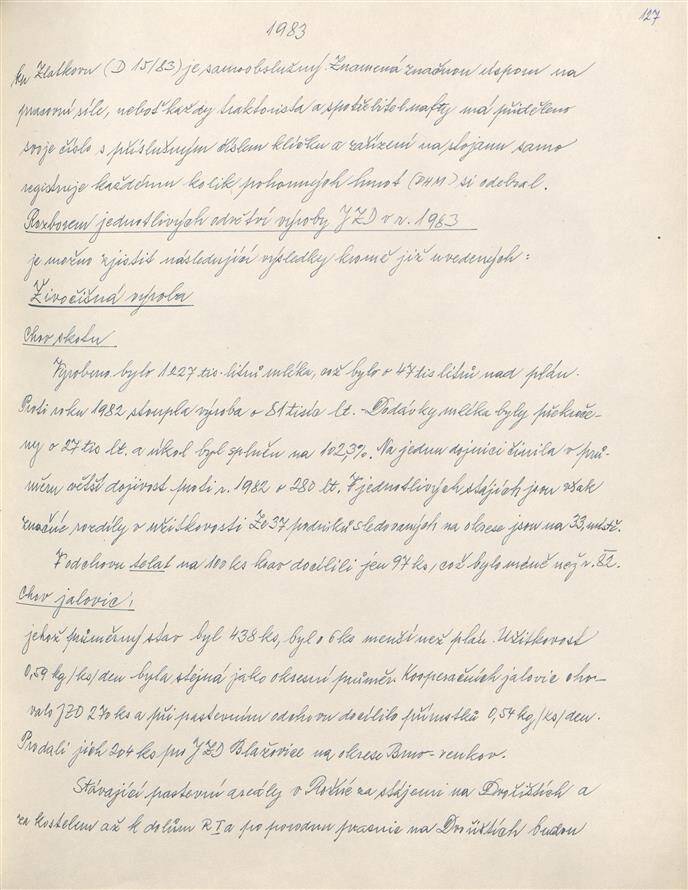 1983
127
ku Zlatkovu (D 15/83) je samoobslužný. Znamená značnou úsporu na
pracovní síle, neboť každý traktorista a spotřebitel nafty má přiděleno
svoje číslo s příslušným číslem klíčku a zařízení na stojanu samo
registruje každému kolik pohonných hmot (PHM) si odebral.
Rozborem jednotlivých odvětví výroby JZD v r. 1983
je možno zjistit následující výsledky kromě již uvedených:
Živočišná výroba
Chov skotu
Vyrobeno bylo 1227 tis. litrů mléka, což bylo o 47 tis litrů nad plán.
Proti roku 1982 stoupla výroba o 81 tisíc lt. - Dodávky mléka byly překroče-
ny o 27 tis lt. a úkol byl splněn na 102,3%. Na jednu dojnici činila v prů-
měru větší dojivost proti r. 1982 o 280 lt. V jednotlivých stájích jsou však
značné rozdíly v užitkovosti Ze 37 podniků sledovaných na okrese jsou na 33. místě.
V odchovu telat na 100 ks krav docílili jen 97 ks, což bylo méně než v r. 82.
Chov jalovic,
jehož průměrný stav byl 438 ks, byl o 6 ks menší než plán. Užitkovost
0,59 kg/ks/den byla stejná jako okresní průměr. Kooperačních jalovic cho-
valo JZD 270 ks a při pastevním odchovu docílilo přírůstků 0,54 kg/ks/den.
Prodali jich 204 ks pro JZD Blažovice na okrese Brno-venkov.
Stávající pastevní areály v Rožné za stájemi na Dvořištích a
za kostelem až k dolům R I a po porodnu prasnic na Dvořištích budou